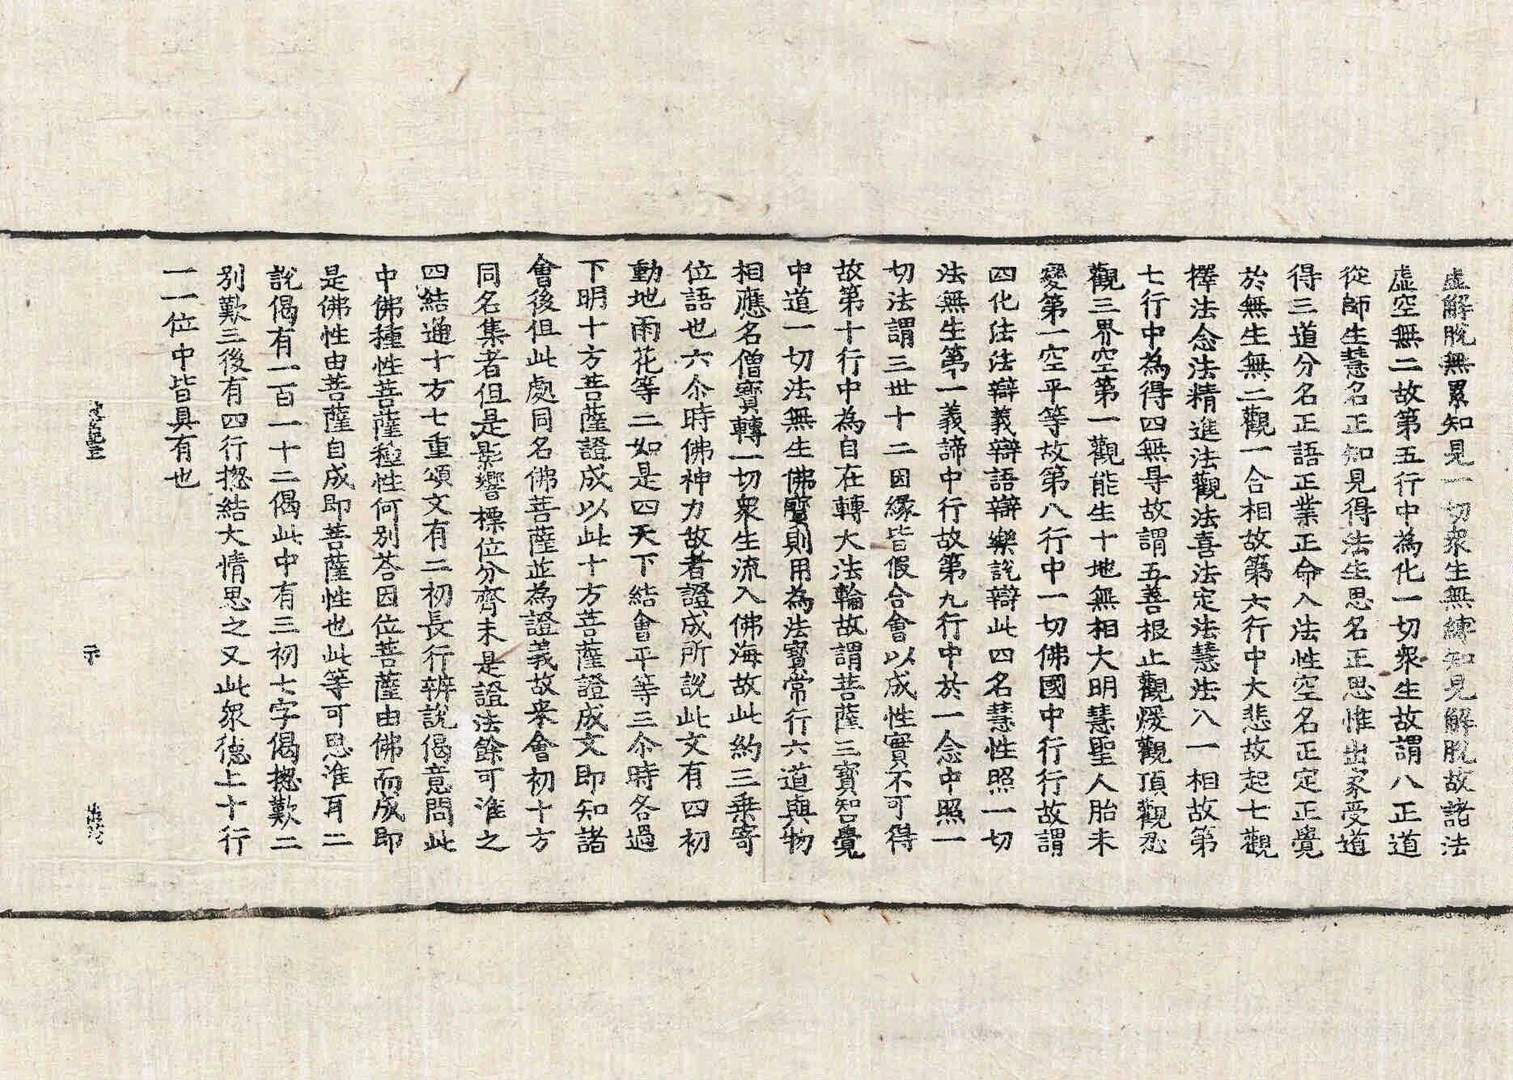 虛解脫無累知見一切衆生無縛知見解脫故諸法
虛空無二故第五行中為化一切衆生故謂八正道
從師生慧名正知見得法生思名正思惟出家受道
得三道分名正語正業正命入法性空名正定正覺
於無生無二觀一合相故第六行中大悲故起七觀
擇法念法精進法觀法喜法定法慧法八一相故第
七行中為得四無㝵故謂五善根止觀煖觀頂觀忍
觀三界空第一觀能生十地無相大明慧聖人胎未
變第一空平等故第八行中一切佛國中行行故謂
四化法法辯義辯語辯樂說辯此四名慧性照一切
法無生第一義諦中行故第九行中於一念中照一
切法謂三丗十二因緣皆假合會以成性實不可得
故第十行中為自在轉大法輪故謂菩薩三寶知覺
中道一切法無生佛寶則用為法寶常行六道與物
相應名僧寶轉一切衆生流入佛海故此約三乗寄
位語也六尒時佛神力故者證成所說此文有四初
動地雨花等二如是四天下結會平等三尒時各過
下明十方菩薩證成以此十方菩薩證成文即知諸
會後但此處同名佛菩薩並為證義故来會初十方
同名集者但是影響標位分齊未是證法餘可准之
四結通十方七重頌文有二初長行辨說偈意問此
中佛種性菩薩種性何別荅因位菩薩由佛而成即
是佛性由菩薩自成即菩薩性也此等可思准耳二
說偈有一百一十二偈此中有三初七字偈揔歎二
別歎三後有四行揔結大情思之又此衆德上十行
一一位中皆具有也
示